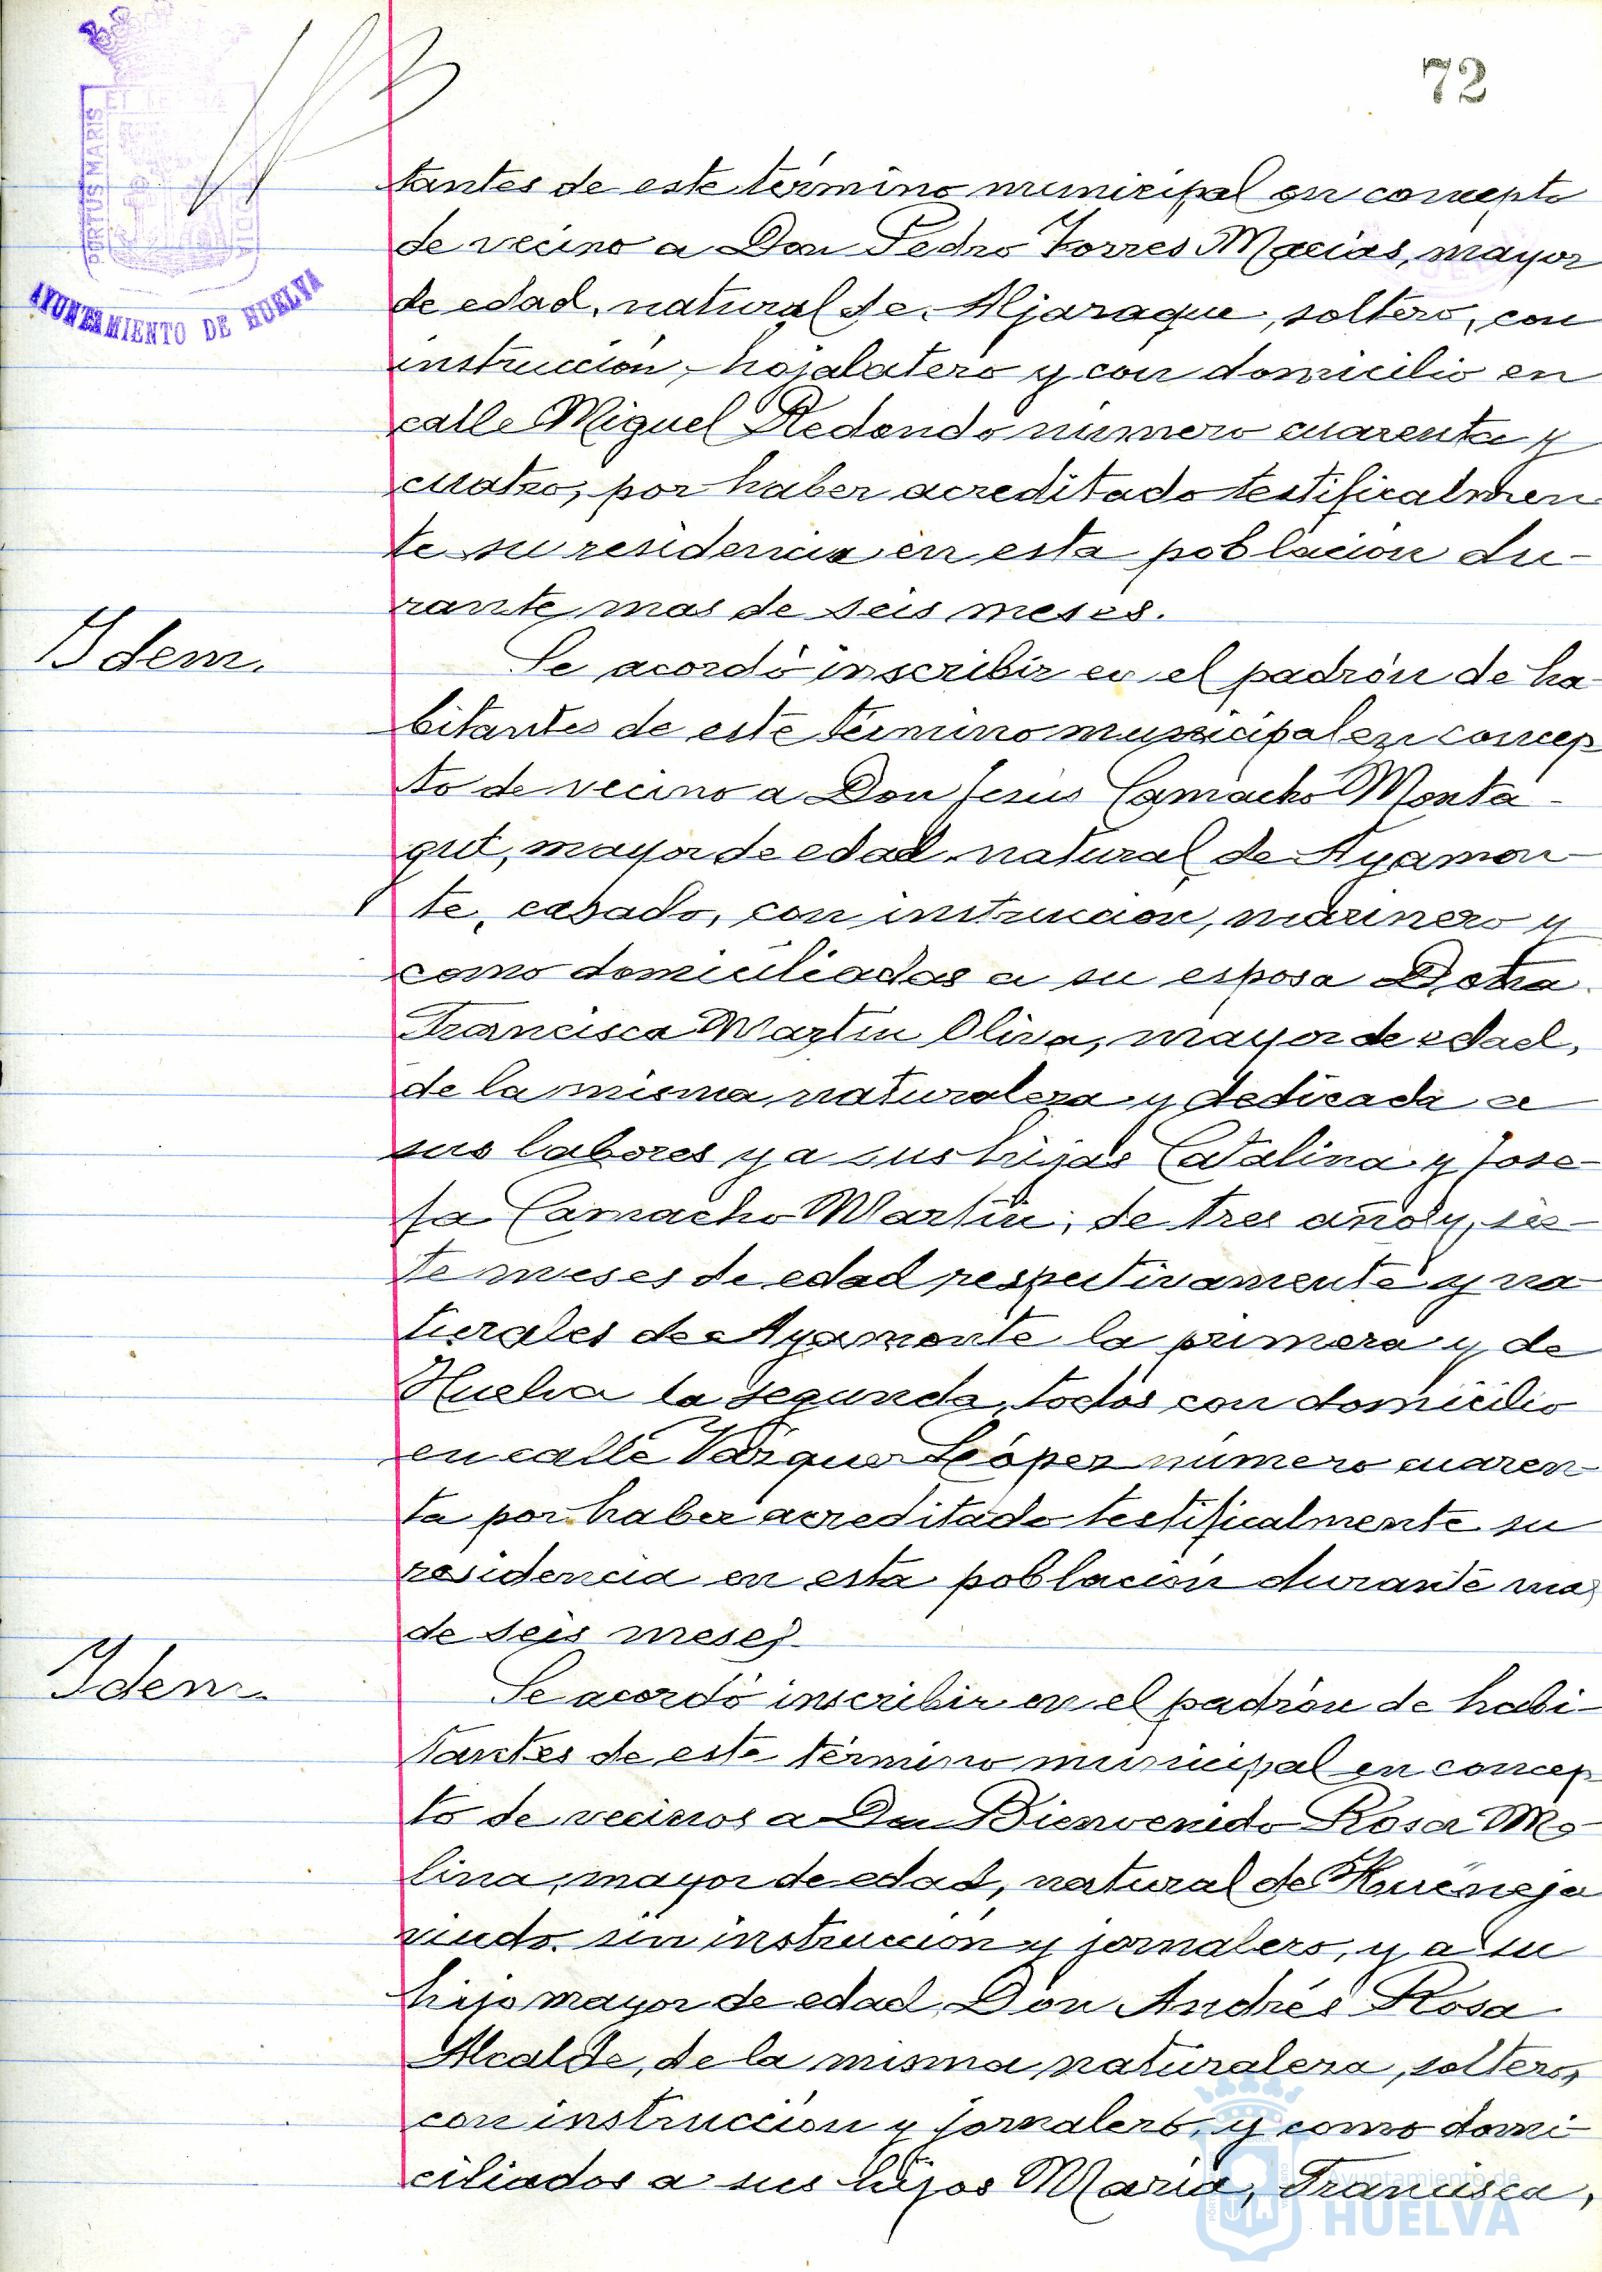 72
PORTUS MARIS
AYUNTAMIENTO DE HUELVA
tantes de este término municipal en concepto
de vecino a Don Pedro Torres Macias, mayor
de edad, natural de Aljaraque, soltero, con
instruccion, hojalatero y con domicilio en
calle Miguel Redondo número cuarenta y
cuatro, por haber acreditado testificalmen
te su residencia en esta poblacion du-
rante mas de seis meses.
Idem.
Se acordó inscribir en el padrón de ha-
bitantes de este término municipal en concep
to de vecino a Don Jesús Camacho Monta-
gut, mayor de edad natural de Ayamon-
te, casado, con instruccion, marinero y
como domiciliadas a su esposa Doña
Francisca Martin Oliva, mayor de edad,
de la misma naturaleza y dedicada a
sus labores y a sus hijas Catalina y Jose-
fa Camacho Martin, de tres años y sie-
te meses de edad respectivamente y na
turales de Ayamonte la primera y de
Huelva la segunda, todos con domicilio
en calle Vázquez López número cuaren-
ta por haber acreditado testificalmente su
residencia en esta poblacion durante mas
de seis meses
Idem.
Se acordó inscribir en el padrón de habi-
tantes de este término municipal en concep
to de vecinos a Don Bienvenido Rosa Mo-
lina, mayor de edad, natural de Huéneja
viudo sin instruccion y jornalero, y a su
hijo mayor de edad Don Andrés Rosa
Alcalde, de la misma naturaleza, soltero,
con instruccion y jornalero, y como domi-
ciliados a sus hijos Maria, Francisca,
Ayuntamiento de
HUELVA